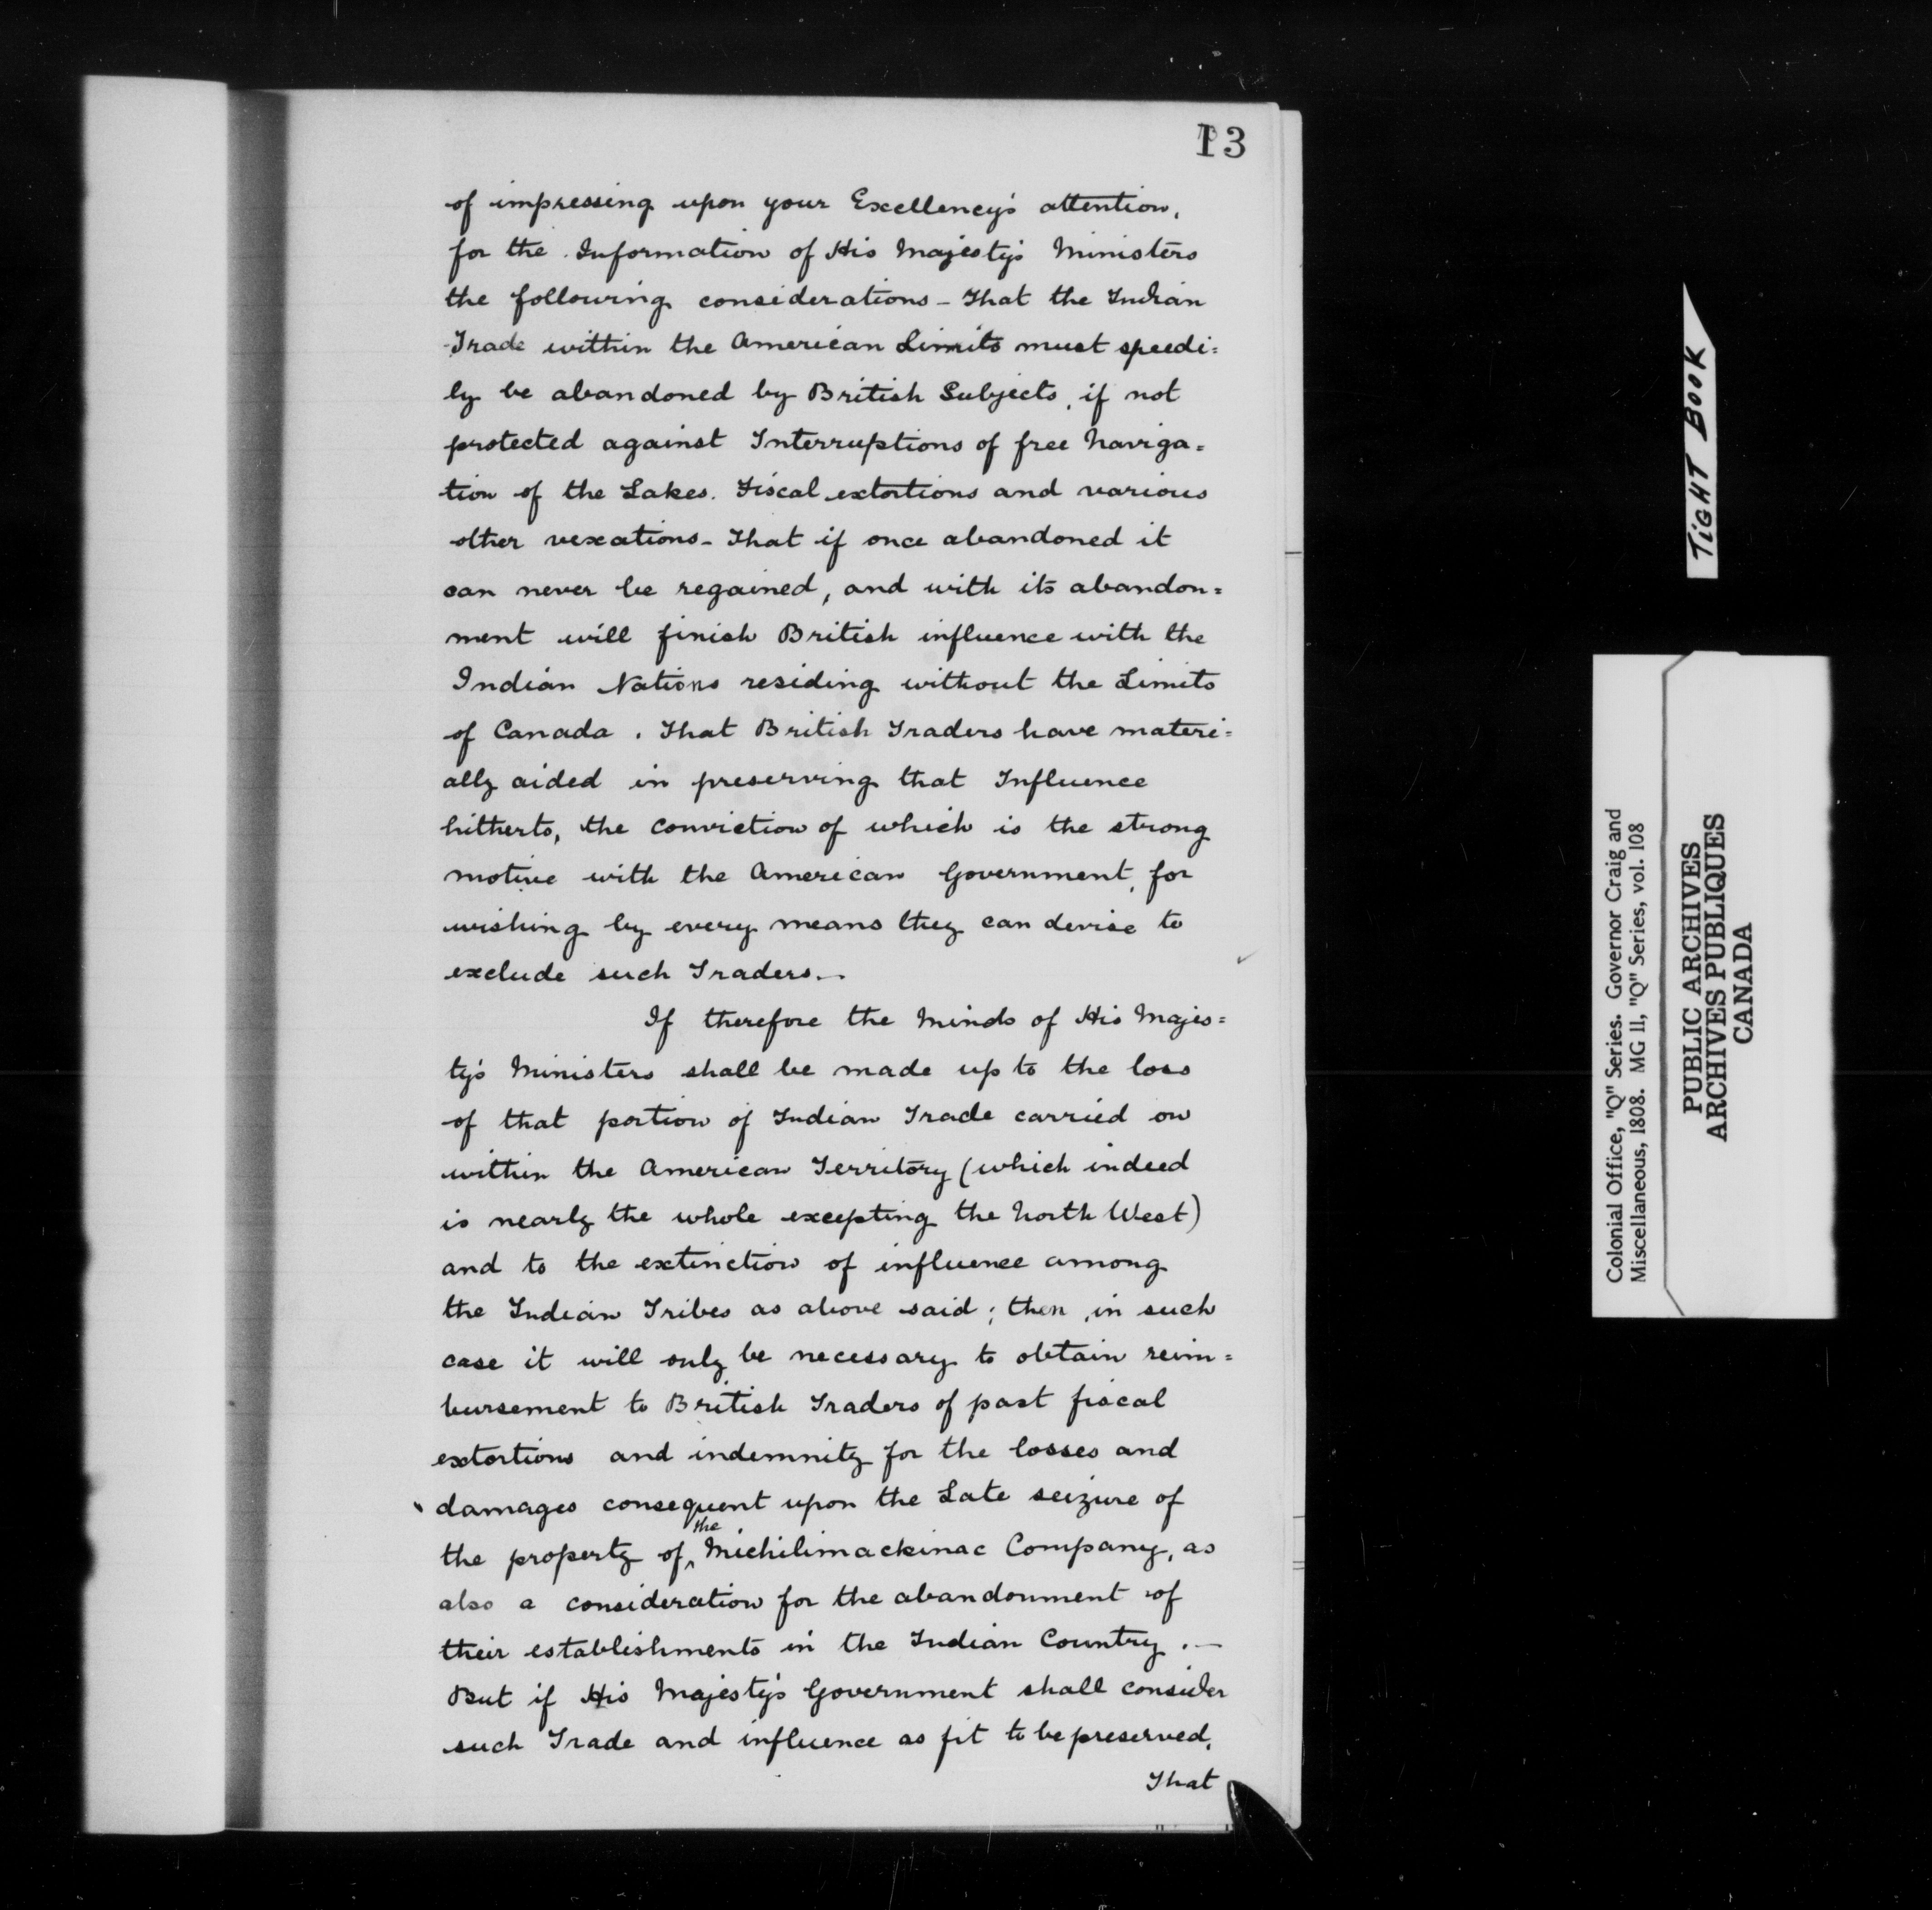 13
of impressing upon your Excellency's attention,
for the Information of His Majesty's Ministers
the following considerations - That the Indian
Trade within the American Limits must speedi=
ly be abandoned by British Subjects, if not
protected against Interruptions of free Naviga=
tion of the Lakes. Fiscal extortions and various
other vexations - That if once abandoned it
can never be regained, and with its abandon=
ment will finish British influence with the
Indian Nations residing without the Limits
of Canada. That British Traders have materi=
ally aided in preserving that Influence
hitherto, the conviction of which is the strong
motive with the American Government, for
wishing by every means they can devise to
exclude such Traders.—
If therefore the Minds of His Majes=
ty's Ministers shall be made up to the loss
of that portion of Indian Trade carried on
within the American Territory (which indeed
is nearly the whole excepting the North West)
and to the extinction of influence among
the Indian Tribes as above said; then, in such
case it will only be necessary to obtain reim=
bursement to British Traders of past fiscal
extortions and indemnity for the losses and
damages consequent upon the Late seizure of
the property of ^the Michilimackinac Company, as
also a consideration for the abandonment of
their establishments in the Indian Country.—
But if His Majesty's Government shall consider
such Trade and influence as fit to be preserved,
That
TIGHT BOOK
Colonial Office, "Q" Series. Governor Craig and
Miscellaneous, 1808. MG 11, "Q" Series, vol. 108
PUBLIC ARCHIVES
ARCHIVES PUBLIQUES
CANADA